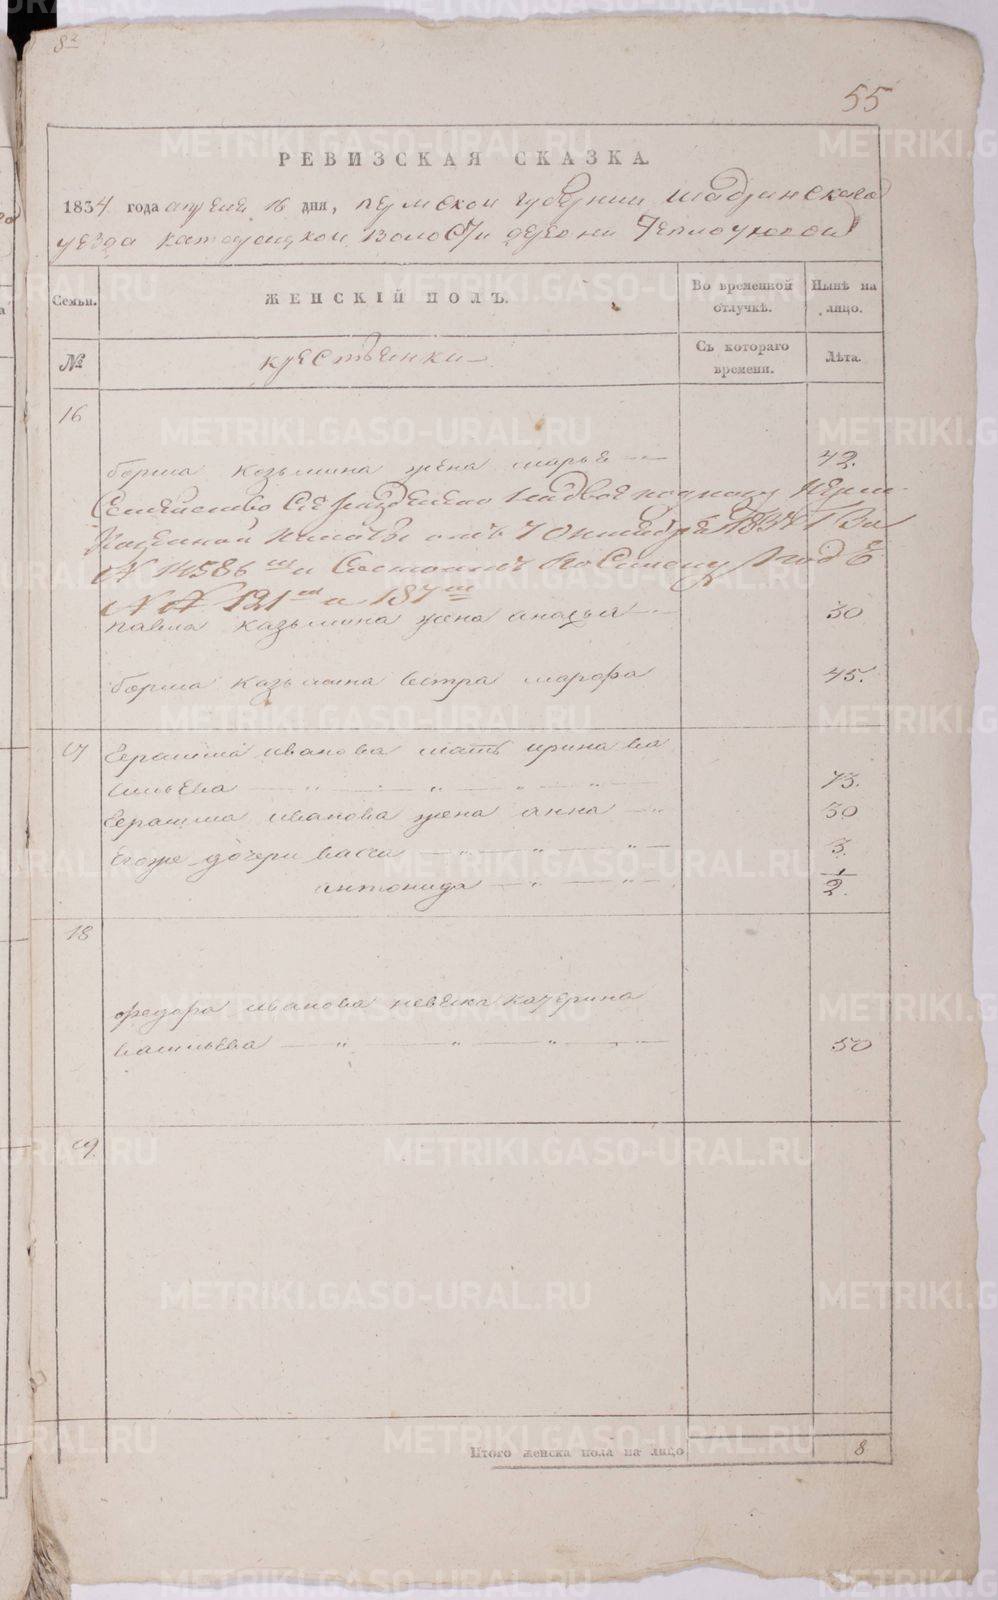 82
55
РЕВИЗСКАЯ СКАЗКА.
1834 года апреля 16 дня, пермской губернии шадринскаго
уезда катайской волости деревни
Семьи. ЖЕНСКІЙ ПОЛЪ. Во временной отлучкѣ. Нынѣ на лицо.
№ крестьянки Съ котораго времени. Лѣта.
16
козьмина жена марья 42.
Семейство Сіе разделено надвое по указу Перм-
Казенной Палаты отъ 7 Октября 1837 Г За
N 14586 м и Состоитъ по Списку под
N N 121 м и 187 м
павла казьмина жена 30
козьмина сестра марфа 45.
17 Герасима иванова мать ирина ва
сильева 73.
Герасима иванова жена анна 30
Егоже дочери васса 3.
антонида 1/2.
18
федора иванова невѣска катерина
васильева 50
19
Итого женска пола на лицо 8
METRIKI.GASO-URAL.RU